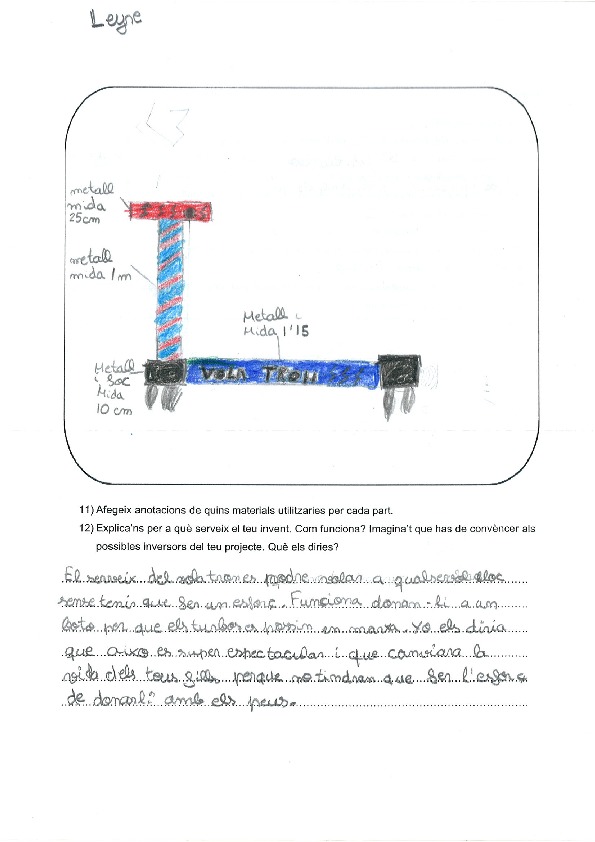 Leyre
metall
mida
25cm
metall
mida 1m
Metall i
Mida 1'15
Metall
i foc
Mida
10 cm
VOLA TRON
11) Afegeix anotacions de quins materials utilitzaries per cada part.
12) Explica'ns per a què serveix el teu invent. Com funciona? Imagina't que has de convèncer als
possibles inversors del teu projecte. Què els diries?
El serveix del vola tron es podre volar a qualsevol lloc
sense tenir que fer un esforç. Funciona donan-li a un
boto per que els turbos es possin en marxa. Yo els diria
que aixo es super espectacular i que canviara la
vida dels teus fills perque no tindran que fer l'esforç
de donarli amb els peus.